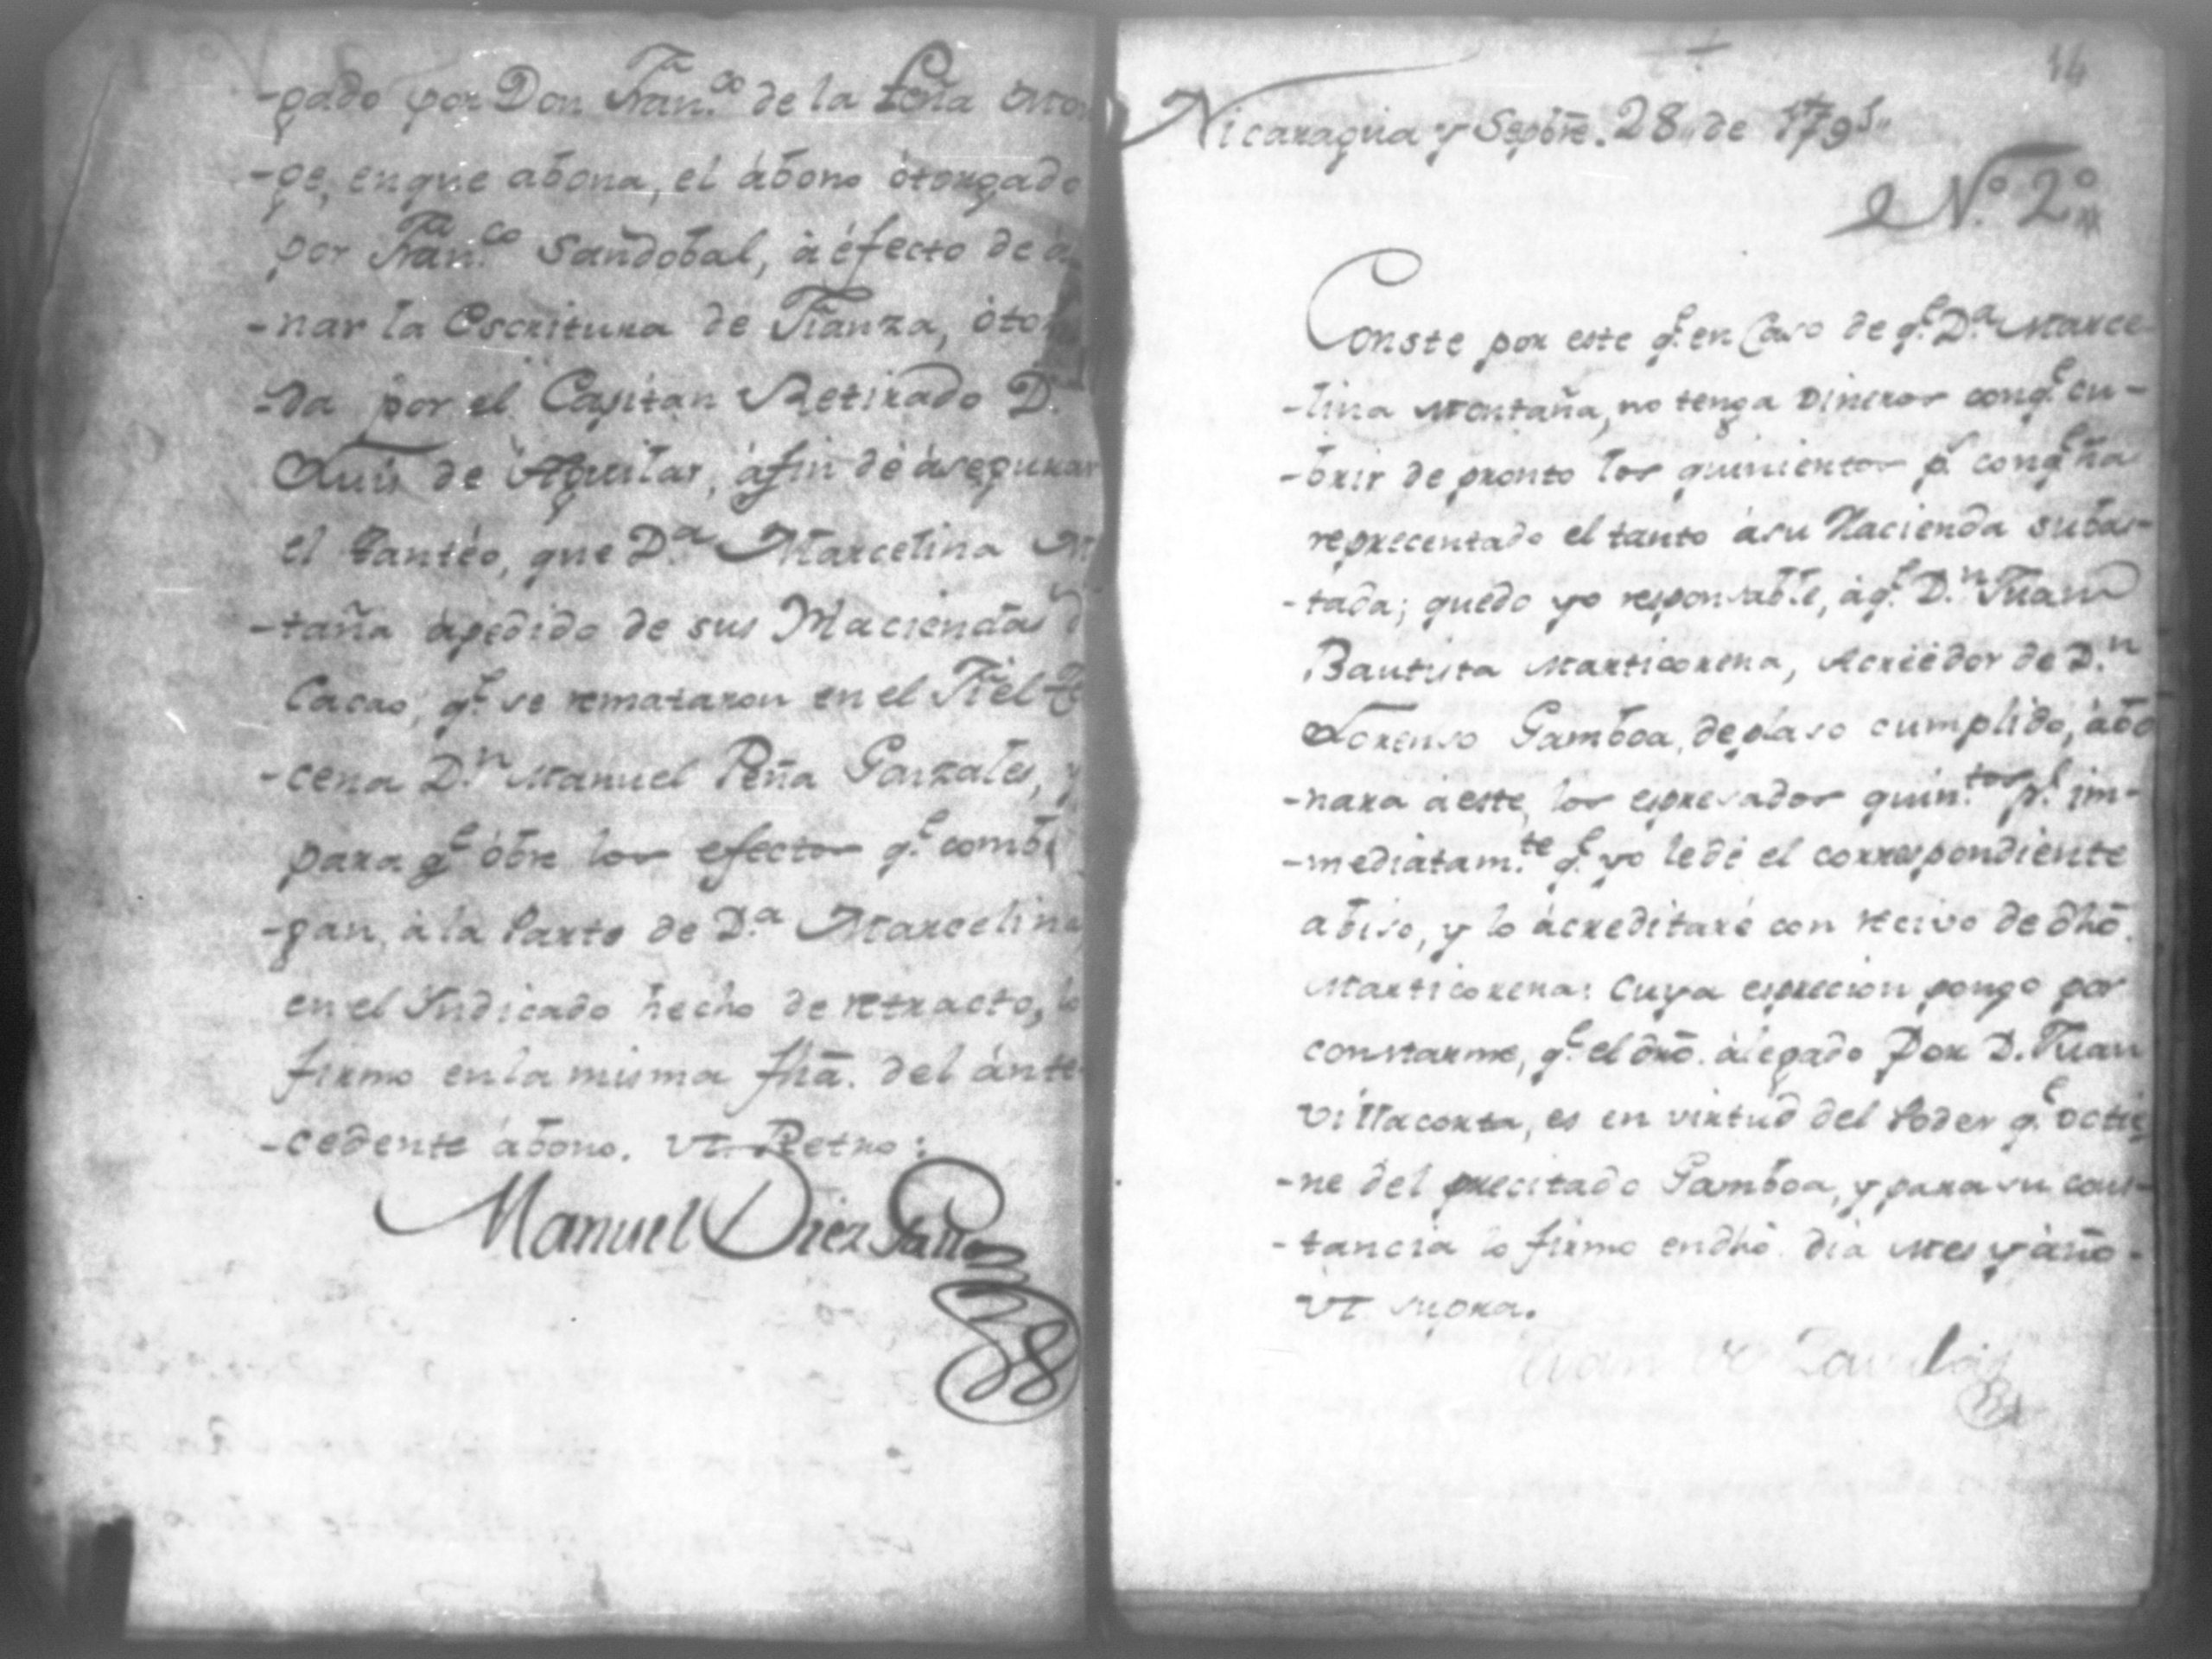 -gado por Don Fran.co de la
-ge, en que abona, el ábono ótorgado
por Fran.co Sandobal, à éfecto de á
-nar la Escritura de Fianza, ótor
-da por el Capitan Retirado D.
Luis de Aguilar, áfin de ásegurar
el tantéo, que D.a Marcelina M
-taña ápedido de sus Haciendas d
Cacao, q.e se remataron en el Fiel
-cena D.n Manuel Peña Gonzales, y
para q.e óbre los efectos q.e comb
-gan, à la Parte de D.a Marcelina,
en el Yndicado hecho de retracto, lo
firmo en la misma fhã. del ánte
-cedente ábono. Vt. Retro:
Manuel Diez
14
Nicaragua y Sepbrẽ. 28,, de 179
N.o 2.o
Conste por este q.e en Caso de q.e D.a Marce-
-lina Montaña, no tenga Dineros conq.e cu-
-brir de pronto los quinientos p.s conq.e ha
reprecentado el tanto ásu Hacienda subas-
-tada; quedo yo responsable, áq.e D.n Juan
Bautista Marticorena, Acreédor de D.n
Lorenso Gamboa, deplaso cumplido, ábo
-nara áeste, los espresados quin.tos p.s im-
-mediatam.te q.e yo ledé el correspondiente
abiso, y lo ácreditaré con recivo de dhõ.
Marticorena: Cuya esprecion pongo por
constarme, q.e el drõ. álegado Por D. Juan
Villacorta, es en virtud del Poder q.e octie
-ne del precitado Gamboa, y para su cons-
-tancia lo firmo endhõ dia Mes y áño-
vt supra.
Juan de